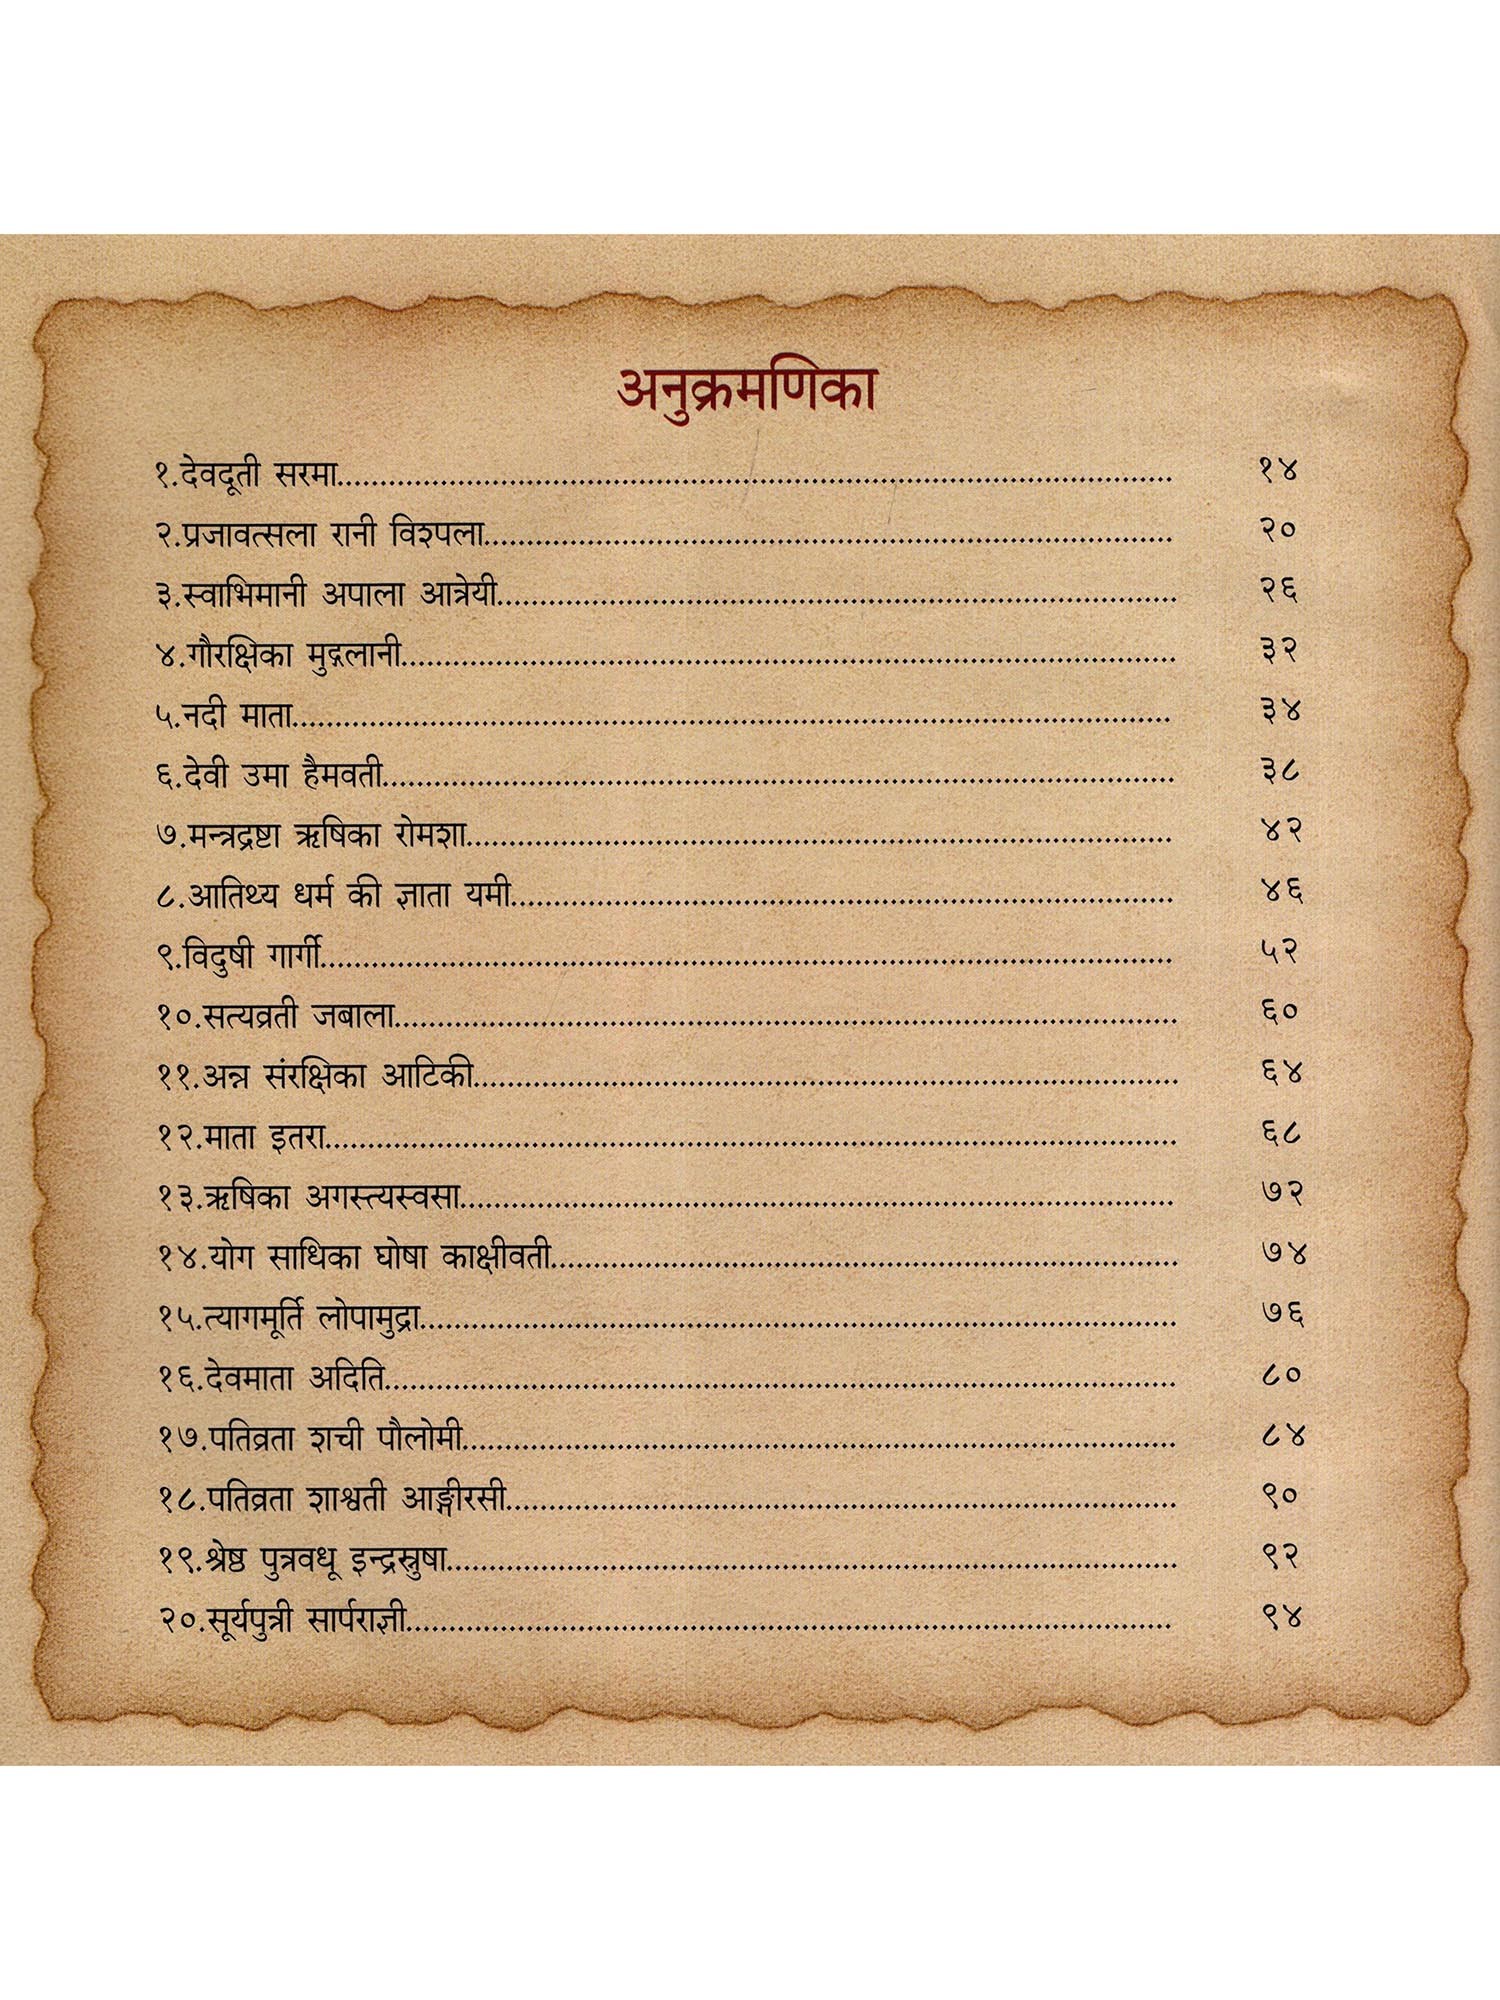 अनुक्रमणिका
१.देवदूती सरमा........................................................................................................ १४
२.प्रजावत्सला रानी विश्पला........................................................................................ २०
३.स्वाभिमानी अपाला आत्रेयी...................................................................................... २६
४.गौरक्षिका मुद्गलानी.................................................................................................. ३२
५.नदी माता............................................................................................................. ३४
६.देवी उमा हैमवती................................................................................................... ३८
७.मन्त्रद्रष्टा ऋषिका रोमशा.......................................................................................... ४२
८.आतिथ्य धर्म की ज्ञाता यमी..................................................................................... ४६
९.विदुषी गार्गी.......................................................................................................... ५२
१०.सत्यव्रती जबाला.................................................................................................. ६०
११.अन्न संरक्षिका आटिकी......................................................................................... ६४
१२.माता इतरा.......................................................................................................... ६८
१३.ऋषिका अगस्त्यस्वसा.......................................................................................... ७२
१४.योग साधिका घोषा काक्षीवती................................................................................ ७४
१५.त्यागमूर्ति लोपामुद्रा............................................................................................... ७६
१६.देवमाता अदिति................................................................................................... ८०
१७.पतिव्रता शची पौलोमी.......................................................................................... ८४
१८.पतिव्रता शाश्वती आङ्गीरसी..................................................................................... ९०
१९.श्रेष्ठ पुत्रवधू इन्द्रस्नुषा............................................................................................ ९२
२०.सूर्यपुत्री सार्पराज्ञी................................................................................................. ९४